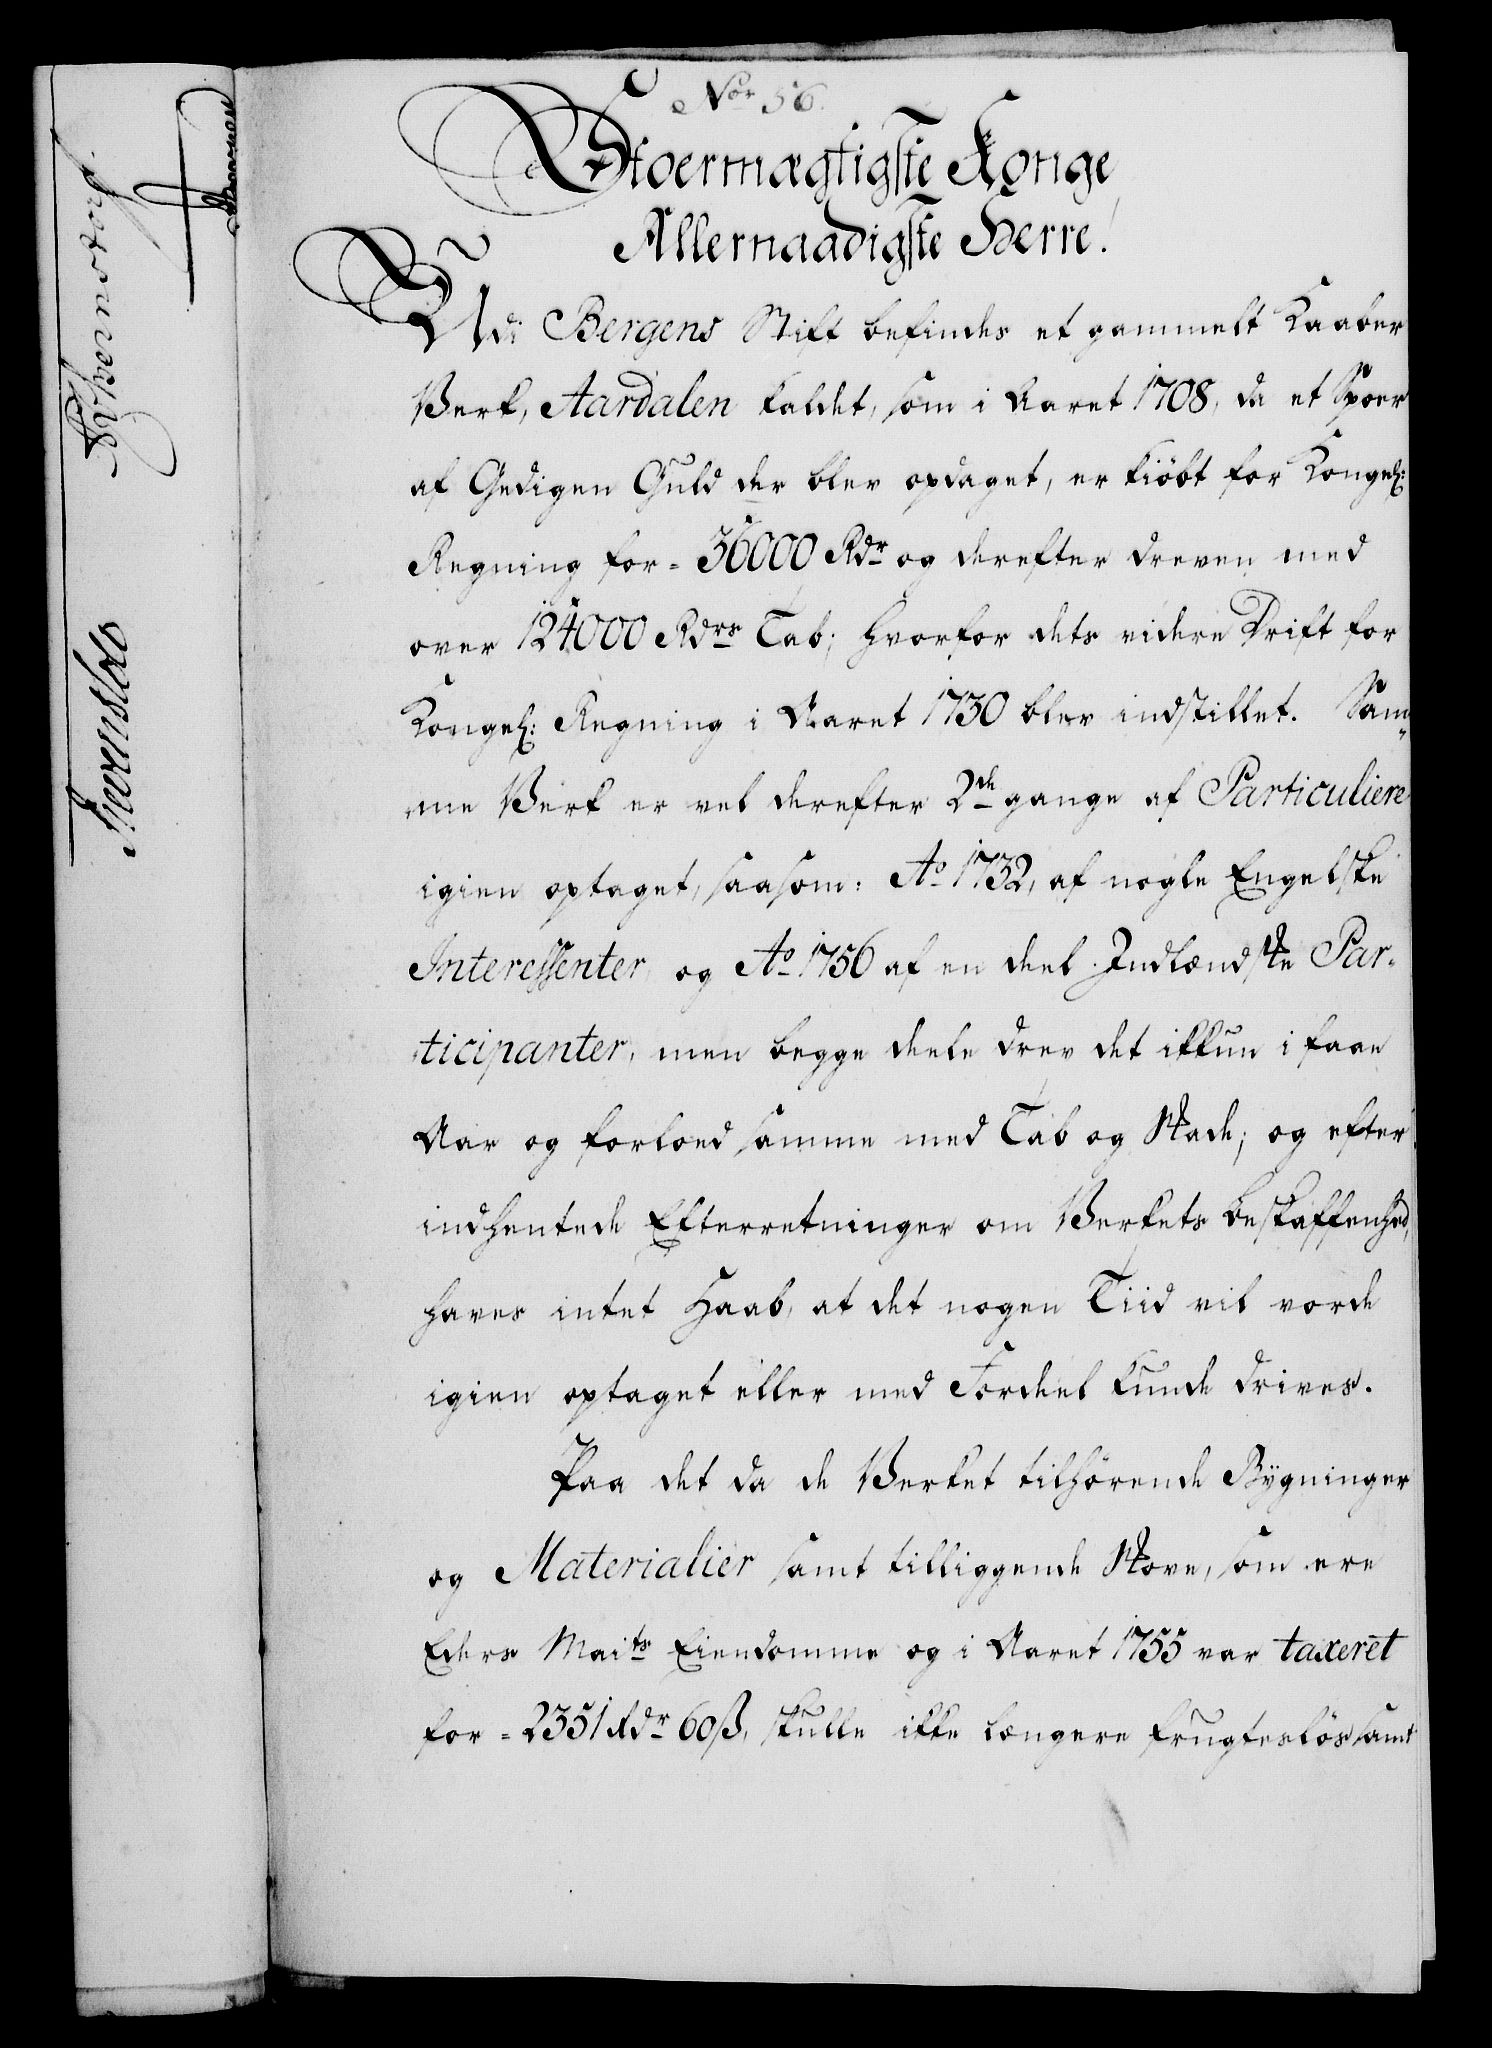 Nor 56.
Stoermægtigste Konge
Allernaadigste Herre!
Udi Bergens Stift befindes et gammelt Kaaber
Verk, Aardalen kaldet, som i Aaret 1708, da et Spoer
af Gedigen Guld der blev opdaget, er kiöbt for Kongel:
Regning for = 36000 Rdr og derefter dreven med
over 124000 Rdrs Tab; hvorfor dets videre Drift for
Kongel: Regning i Aaret 1730 blev indstillet. Sam„
me Verk er vel derefter 2de gange af Particuliere
igien optaget, saasom: Ao 1732, af nogle Engelske
Interessenter, og Ao 1756 af en deel Indlændske Par„
ticipanter, men begge deele drev det ikkun i faae
Aar og forloed samme med Tab og Skade; og efter
indhentede Efterretninger om Verkets beskaffenhed,
haves intet Haab, at det nogen Tiid vil vorde
igien optaget eller med Fordeel kunde drives.
Paa det da de Verket tilhörende Bÿgninger
og Materialier samt tilliggende Skove, som ere
Eders Maits Eiendomme og i Aaret 1755 var taxeret
for = 2351 Rdr 60ß, skulle ikke længere frugteslös samt